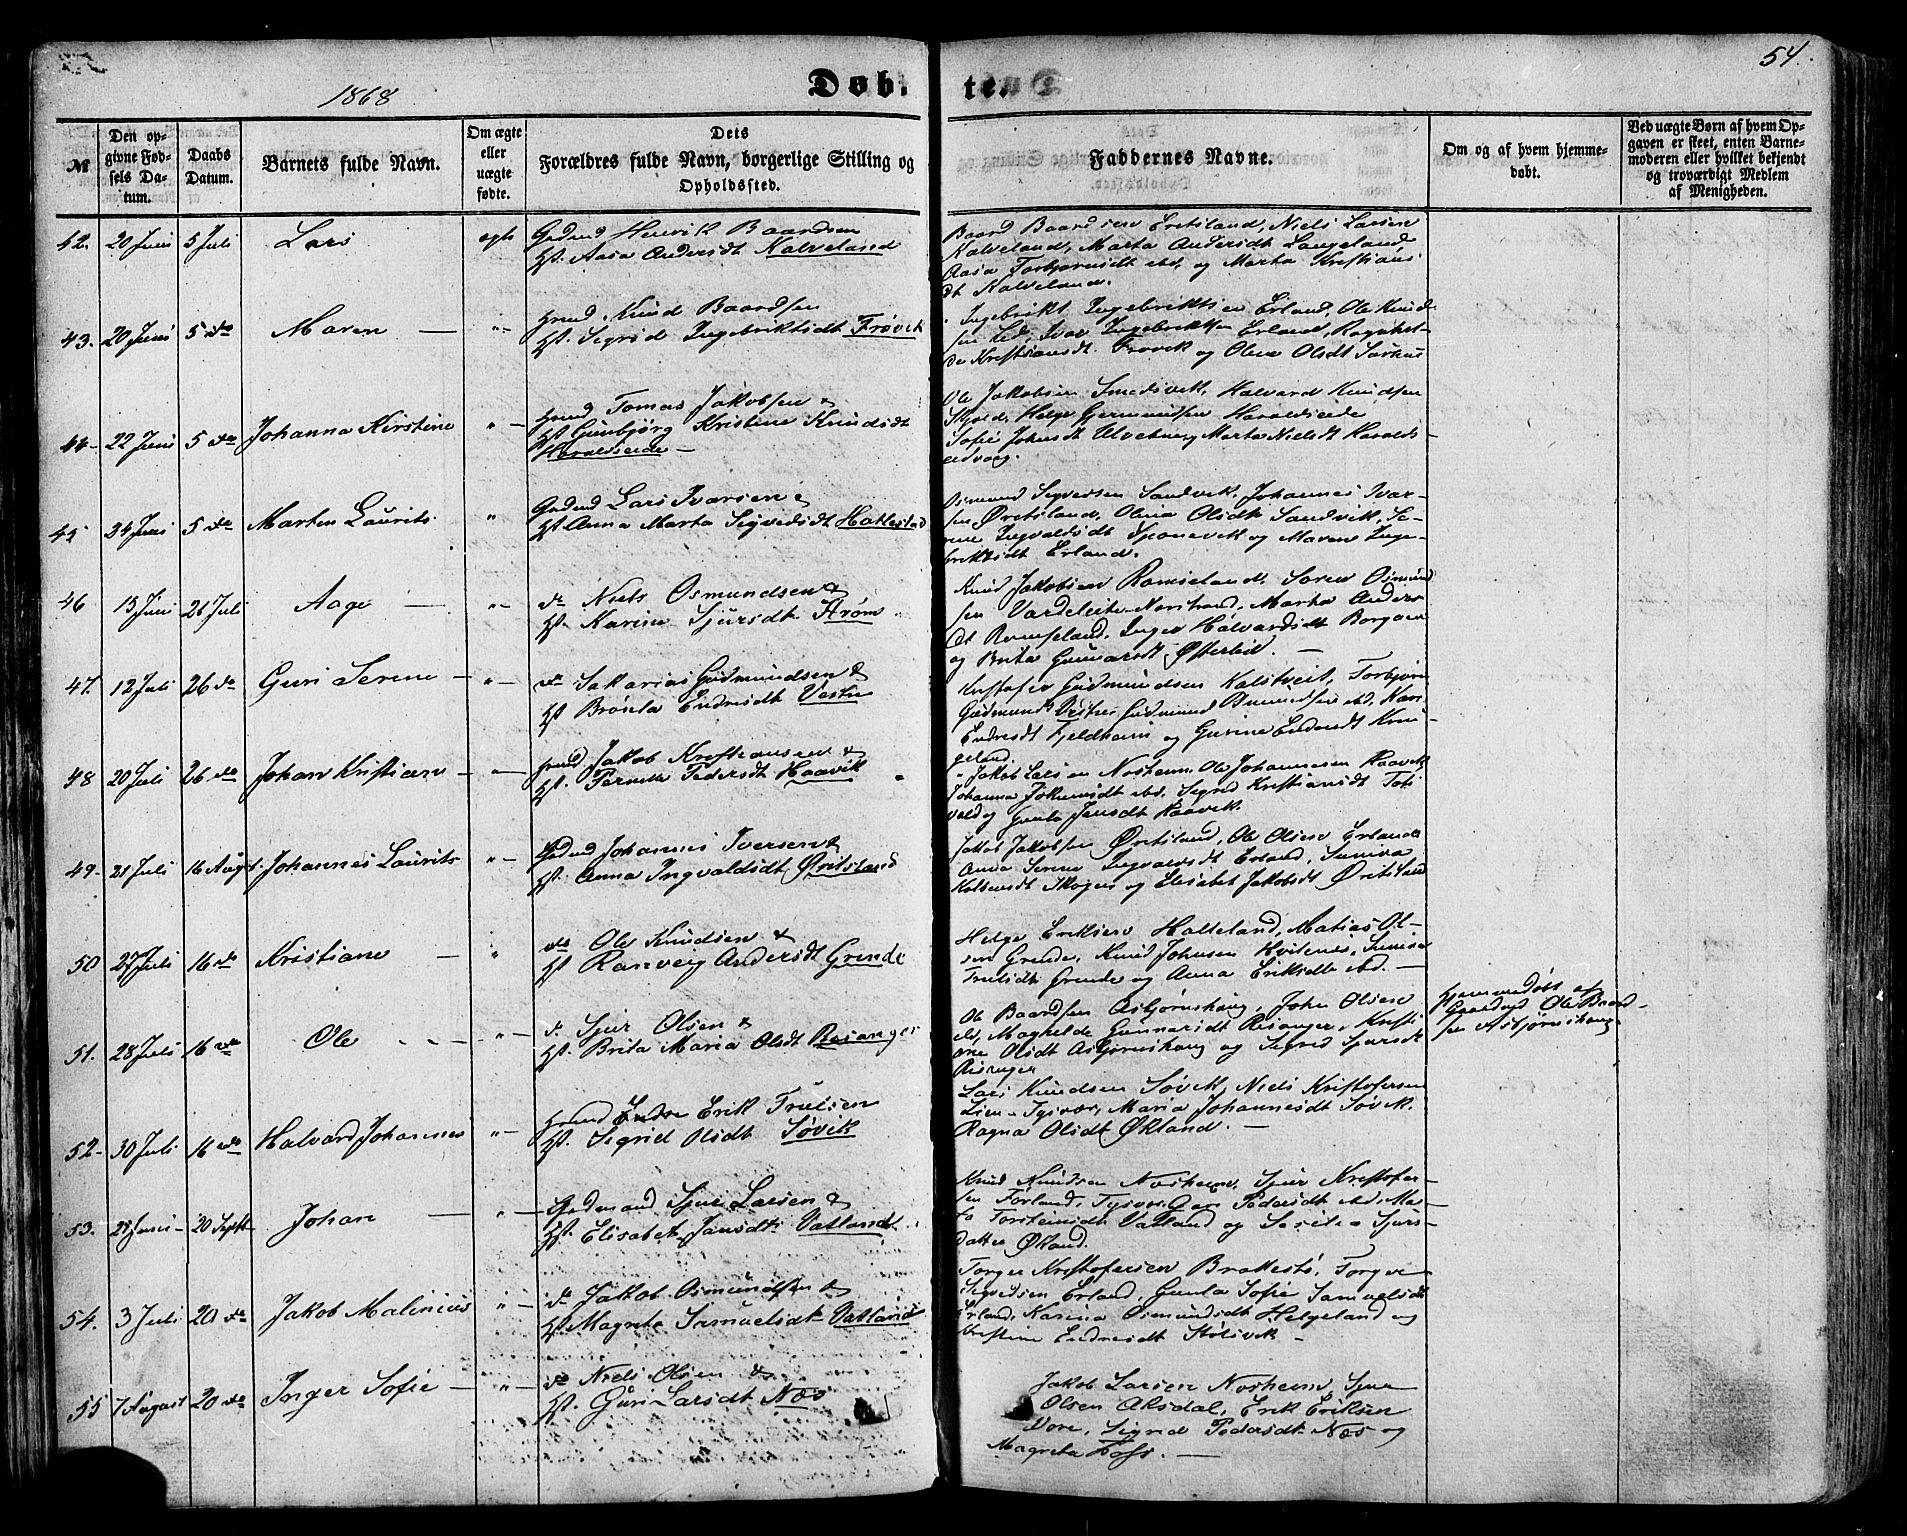 54.
1868
Døb-
te.
№
Den op-
givne Fød-
sels Da-
tum.
Daabs
Datum.
Barnets fulde Navn.
Om ægte
eller
uægte
fødte.
Dets
Forældres fulde Navn, borgerlige Stilling og
Opholdssted.
Faddernes Navne.
Om og af hvem hjemme-
døbt.
Ved uægte Børn af hvem Op-
gaven er skeet, enten Barne-
moderen eller hvilket bekjendt
og troværdigt Medlem
af Menigheden.
42. 20 Juni 5 Juli Lars egte
Henrik Baardsen
Hst. Aasa Andersdt Kalveland
Baard Baardsen Eretsland, Niels Larsen
Kalveland, Marta Andersdt Langeland,
Aasa Torbjørnsdt ibd, og Marta Kristians
dt Kalveland.
43. 20 Juni 5 do Maren "
Hmd. Knud Baardsen
Hst. Sigrid Ingebriktsdt Frøvik
Ingebrikt Ingebriktsen Erland, Ole Knud
sen Lid, Ivar Ingebriktsen Erland, Ragnhel-
da Kristiansdt. Frøvik og Olene Olsdt
44 22 Juni 5 do Johanna Kirstine "
Hmd Tomas Jakobsen &
Hst Gunbjørg Kristine Knudsdt
Haraldseide
Ole Jakobsen Smedsvik, Halvard Knudsen
Skjold, Helge Germundsen Haraldseide
Sofie Johnsdt Marta Nielsdt Haralds
eidvaag.
45 24 Juni 5 do Marten Laurits "
Lars Ivarsen &
Hst Anna Marta Sigvedsdt Hatlestad
Osmund Sigvedsen Sandvik, Johannes Ivar-
sen Øretsland, Olena Olsdt Sandvik, Se-
rine Ingvaldsdt Sponevik og Maren Inge-
briktsdt Erland.
46 15 Juni 26 Juli Aage "
do Niels Osmundsen &
Hst. Karine Sjursdt Strøm
Knud Jakobsen Ramseland, Søren Osmund
sen Vardeleite Norstrand, Marta Anders
dt Ramseland, Inger Halvardsdt Borgaen
og Brita Gunnarsdt Østerbø.
47. 12 Juli 26 do Guri Serene "
do Sakarias Gudmundsen &
Hst. Brønla Endresdt Vestre
Kristofer Gudmundsen Kalstveit, Torbjørn
Gudmunds Vestre, Gudmund ibd, Kari
Endresdt Fjeldheim og Gurine Endresdt Krin-
geland.
48 20 Juli 26 do Johan Kristian "
Hmd. Jakob Kristiansen &
Hst. Pernille Pedersdt Haavik
Jakob Larsen Nosheim, Ole Johannesen Haavik,
Johanna ibd. Sigrid Kristiansdt Tos
vold og Gunla Jensdt Haavik.
49. 21 Juli 16 August Johannes Laurits "
Johannes Iversen &
Hst. Anna Ingvaldsdt Øretsland
Jakob Jakobsen Øretsland, Ole Olsen Erland
Anna Serene Ingvaldsdt Erland, Suniva
og Elisabet Jakobsdt Øretsland
50 27 Juli 16 do Kristiane "
do Ole Knudsen &
Hst. Ranveig Andersdt Grinde
Helge Eriksen Halleland, Matias Ol-
sen Grinde, Knud Johnsen Hvitenes, Suniva
Trulsdt Grinde og Anna Eriksdt ibd.
51. 28 Juli 16 do Ole "
do Sjur Olsen &
Hst. Brita Maria Olsdt Risanger
Ole Baardsen Asbjørnshaug, John Olsen
Lid, Maghelde Gunnarsdt Risanger, Kristi-
ane Olsdt Asbjørnshaug og Sigrid Sjursdt
Risanger
Hjemmedøbt af
Ole Baard-
sen Asbjørnshaug
52. 30 Juli 16 do Halvard Johannes "
Hmd Endre Erik Trulsen
Hst. Sigrid Olsdt Søvik
Lars Knudsen Søvik, Niels Kristofersen
Lien-Tysvær, Maria Johannesdt Søvik.
Ragna Olsdt Økland.
53. 20 Septb Johan "
Sjur Larsen &
Hst. Elisabet Jansdt Vatland
Knud Knudsen Nosheim, Sjur Kristofer-
sen Førland, Tysvær, Pedersdt ibd, Mar-
ta Torsteinsdt Vatland og Sjurs-
datter Økland.
54. 3 Juli 20 do Jakob Malinius "
do Jakob Osmundsen &
Hst. Magreta Samuelsdt Vatland
Torger Kristofersen Brakestø, Torger
Sigvedsen Erland, Gunla Sofie Samuelsdt
Erland, Karina Osmundsdt Helgeland og
Kristine Endresdt Stølsvik
55 7 August 20 do Inger Sofie "
do Niels Olsen &
Hst. Guri Larsdt Næs
Jakob Larsen Nosheim, Sjur
Olsen Aksdal, Erik Eriksen
Sigrid Pedersdt Næs og
Magreta